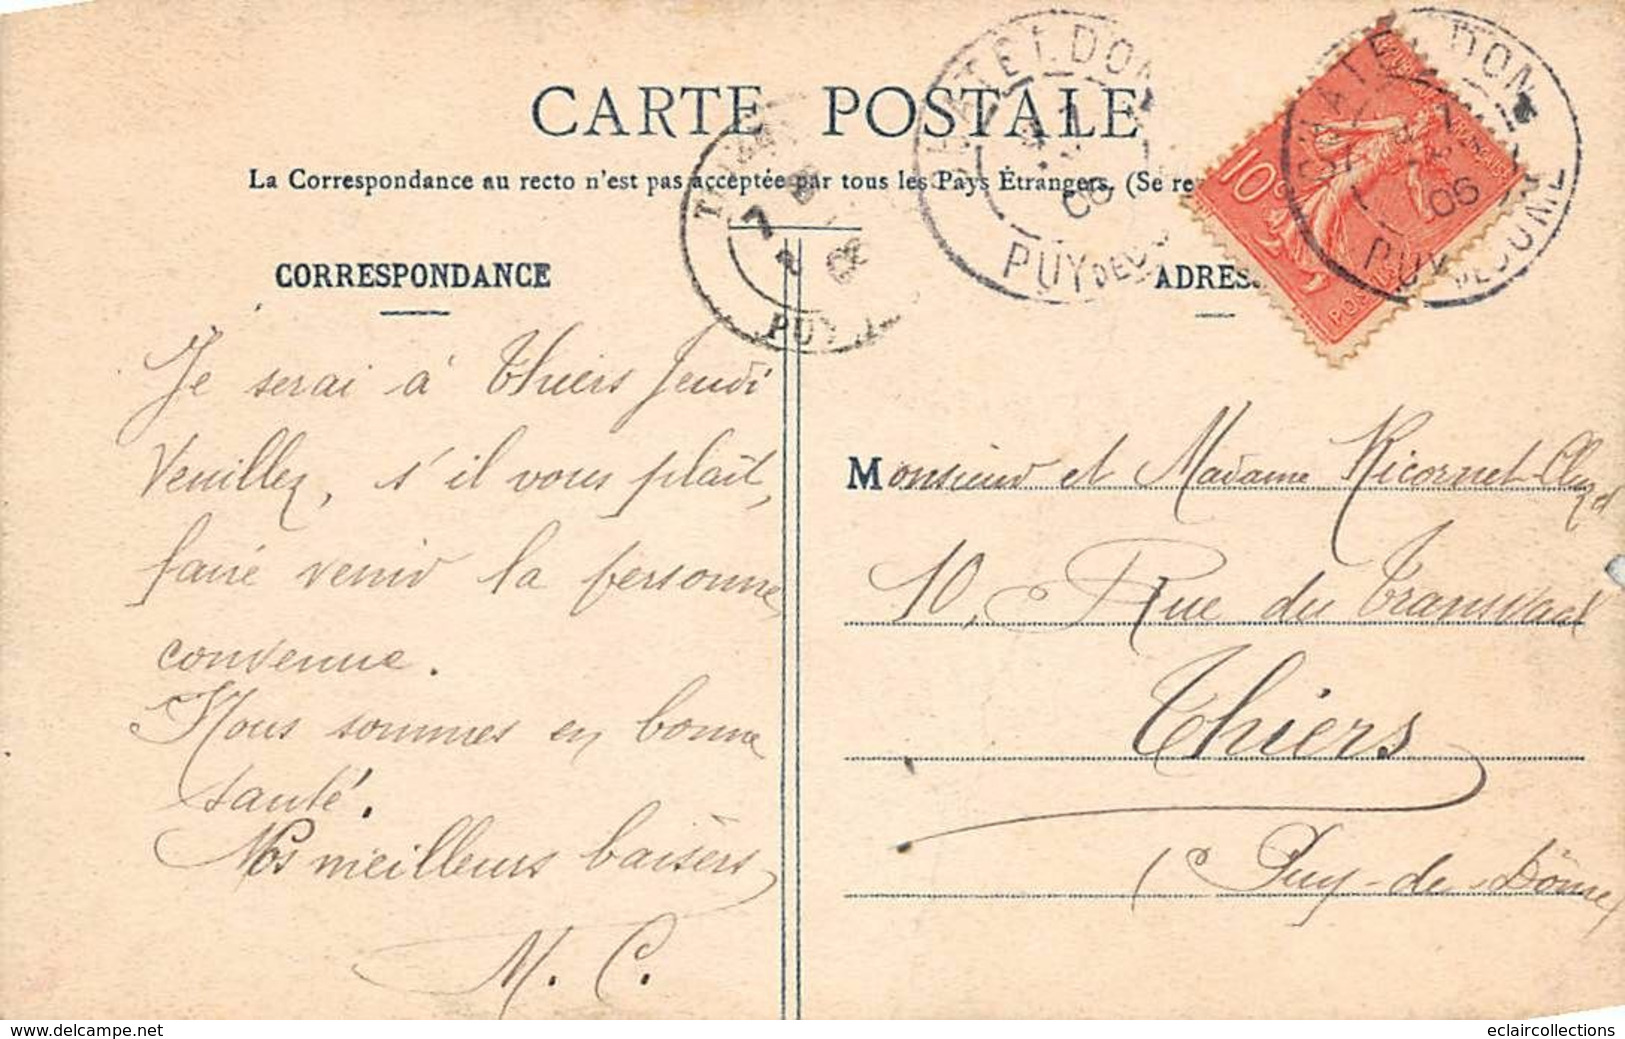 CARTE POSTALE
La Correspondance au recto n'est pas acceptée par tous les Pays Étrangers. (Se re
CORRESPONDANCE
ADRES
CHATELDON
7
06
PUY DE DOME
10c
POS
Je serai à Thiers Jeudi
Veuillez, s'il vous plait,
faire venir la personne
convenue.
Nous sommes en bonne
santé.
Nos meilleurs baisers
M. C.
Monsieur et Madame Ricornet-
10, Rue du Transvaal
Thiers
(Puy-de-Dôme)
www.delcampe.net
eclaircollections